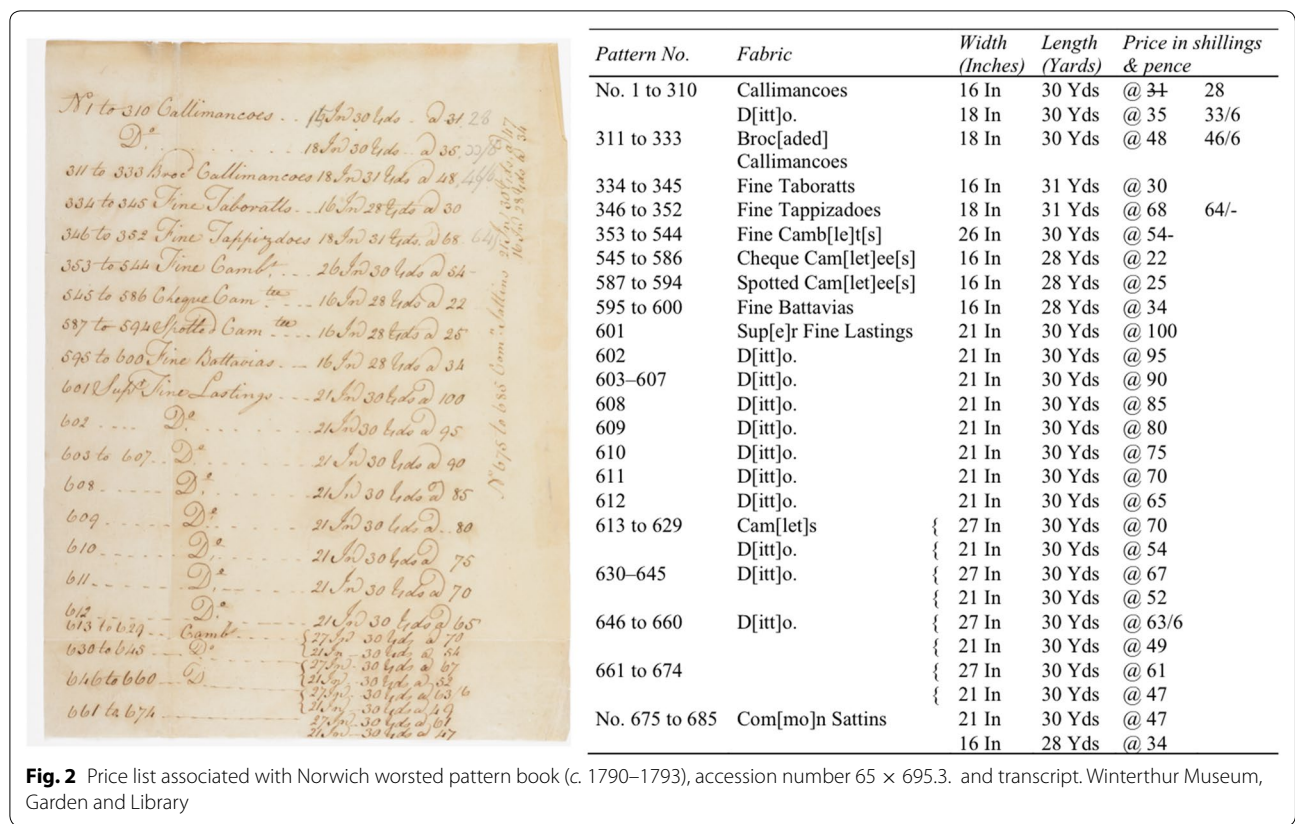 No 1 to 310 Callimancoes . . 16 In 30 Yds - a 31, 28
Do. . . . . . . . 18 In 30 Yds . a 35, 33/6
311 to 333 Broc.d Callimancoes 18 In 31 Yds a 48, 46/6
334 to 345 Fine Taboratts . . 16 In 28 Yds a 30
346 to 352 Fine Tappizdoes 18 In 31 Yds . a 68 64/-
353 to 544 Fine Cambt. . . . 26 In 30 Yds a 54-
545 to 586 Cheque Cam tee . . 16 In 28 Yds a 22
587 to 594 Spotted Cam tee . . 16 In 28 Yds a 25
595 to 600 Fine Battavias . . - 16 In 28 Yds a 34
601 Supr Fine Lastings . . . 21 In 30 Yds a 100
602 . . . . Do. . . . . . . 21 In 30 Yds a 95
603 to 607 . . Do. . . . . . 21 In 30 Yds a 90
608 . . . . . Do. . . . . . 21 In 30 Yds a 85
609 . . . . . Do. . . . . . 21 In 30 Yds a . . 80
610 . . . . . Do. . . . . . 21 In 30 Yds a 75
611 . . . . . Do. . . . . . 21 In 30 Yds a 70
612 . . . . . Do. . . . . . 21 In 30 Yds a 65
613 to 629 - Cambt { 27 In 30 Yds a 70
630 to 645 - Do { 21 In - 30 Yds a 54
{ 27 In - 30 Yds a 67
646 to 660 - D { 21 In - 30 Yds a 52
{ 27 In - 30 Yds a 63/6
{ 21 In - 30 Yds a 49
661 to 674 27 In - 30 Yds a 61
21 In - 30 Yds a 47
No 675 to 685 Comn Sattins 21 In 30 Yds a 47
16 In 28 Yds a 34
Pattern No. Fabric Width (Inches) Length (Yards) Price in shillings & pence
No. 1 to 310 Callimancoes 16 In 30 Yds @ 31 28
D[itt]o. 18 In 30 Yds @ 35 33/6
311 to 333 Broc[aded] 18 In 30 Yds @ 48 46/6
Callimancoes
334 to 345 Fine Taboratts 16 In 31 Yds @ 30
346 to 352 Fine Tappizadoes 18 In 31 Yds @ 68 64/-
353 to 544 Fine Camb[le]t[s] 26 In 30 Yds @ 54-
545 to 586 Cheque Cam[let]ee[s] 16 In 28 Yds @ 22
587 to 594 Spotted Cam[let]ee[s] 16 In 28 Yds @ 25
595 to 600 Fine Battavias 16 In 28 Yds @ 34
601 Sup[e]r Fine Lastings 21 In 30 Yds @ 100
602 D[itt]o. 21 In 30 Yds @ 95
603–607 D[itt]o. 21 In 30 Yds @ 90
608 D[itt]o. 21 In 30 Yds @ 85
609 D[itt]o. 21 In 30 Yds @ 80
610 D[itt]o. 21 In 30 Yds @ 75
611 D[itt]o. 21 In 30 Yds @ 70
612 D[itt]o. 21 In 30 Yds @ 65
613 to 629 Cam[let]s { 27 In 30 Yds @ 70
D[itt]o. { 21 In 30 Yds @ 54
630–645 D[itt]o. { 27 In 30 Yds @ 67
{ 21 In 30 Yds @ 52
646 to 660 D[itt]o. { 27 In 30 Yds @ 63/6
{ 21 In 30 Yds @ 49
661 to 674 { 27 In 30 Yds @ 61
{ 21 In 30 Yds @ 47
No. 675 to 685 Com[mo]n Sattins 21 In 30 Yds @ 47
16 In 28 Yds @ 34
Fig. 2 Price list associated with Norwich worsted pattern book (c. 1790–1793), accession number 65 × 695.3. and transcript. Winterthur Museum,
Garden and Library